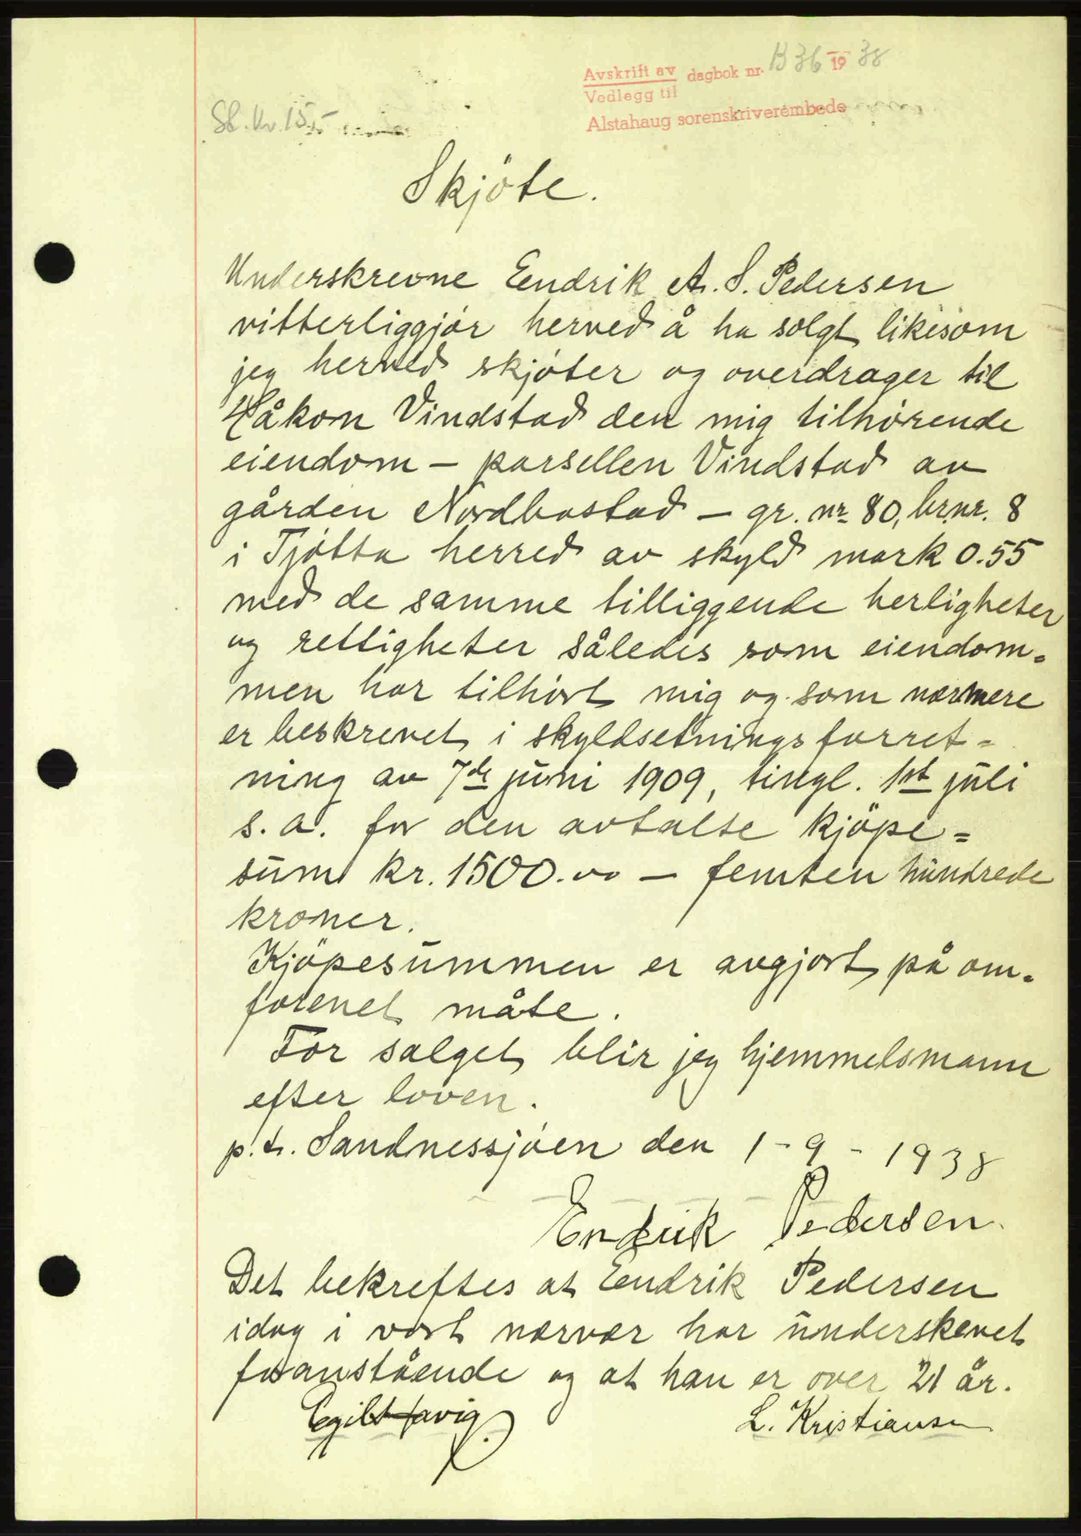 Avskrift av dagbok nr. B 36 1938
Vedlegg til
Alstahaug sorenskriverembede
Sb. kr. 15
Skjöte.
Underskrevne Eendrik A. S. Pedersen
vitterliggjør herved å ha solgt likesom
jeg herved skjøter og overdrager til
Håkon Vindstad den mig tilhørende
eiendom – parsellen Vindstad av
gården Nordbostad – gr. nr 80, br.nr. 8
i Tjøtta herred av skyld mark 0.55
med de samme tilliggende herligheter
og rettigheter således som eiendom-
men har tilhørt mig og som nærmere
er beskrevet i skyldsetningsforret=
ning av 7de juni 1909, tingl. 1st juli
s.a. for den avtalte kjöpe=
sum kr. 1500.00 – femten hundrede
kroner.
Kjöpesummen er avgjort på om-
forenet måte.
For salget blir jeg hjemmelsmann
efter loven.
p.t. Sandnessjøen den 1-9-1938
Endrik Pedersen.
Det bekreftes at Eendrik Pedersen
idag i vort nærvær har underskrevet
foranstående og at han er over 21 år.
L. Kristiansen